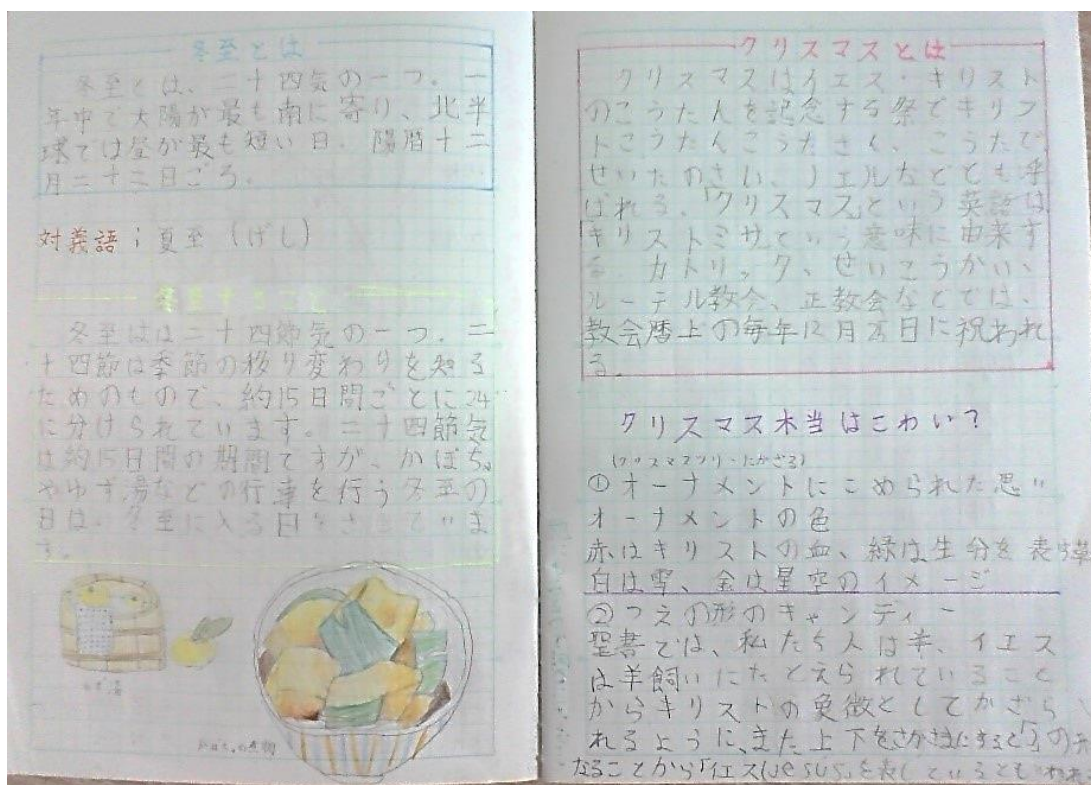 冬至とは
冬至とは、二十四気の一つ。一
年中で太陽が最も南に寄り、北半
球では昼が最も短い日。陽暦十二
月二十二日ごろ。
対義語；夏至（げし）
冬至すること
冬至はは二十四節気の一つ。二
十四節は季節の移り変わりを知る
ためのもので、約15日間ごとに24
に分けられています。二十四節気
は約15日間の期間ですが、かぼちゃ
やゆず湯などの行事を行う冬至の
日は、冬至に入る日をさしていま
す。
ゆず湯
かぼちゃの煮物
クリスマスとは
クリスマスはイエス・キリスト
のこうたんを記念する祭でキリス
トこうたんこうたさく、こうたで
せいたのさい、ノエルなどとも呼
ばれる。「クリスマス」という英語は
キリストミサという意味に由来す
る。カトリック、せいこうかい、
ルーテル教会、正教会などでは、
教会暦上の毎年12月25日に祝われ
る。
クリスマス本当はこわい？
①オーナメントにこめられた思い
オーナメントの色
赤はキリストの血、緑は生分を表す
白は雪、金は星空のイメージ
②つえの形のキャンディー
聖書では、私たち人は羊、イエス
は羊飼いにたとえられていること
からキリストの象徴としてかざら
れるように、また上下をさかさまにすると「J」の
なることから「イエス(Jesus」を表しているともいわれ